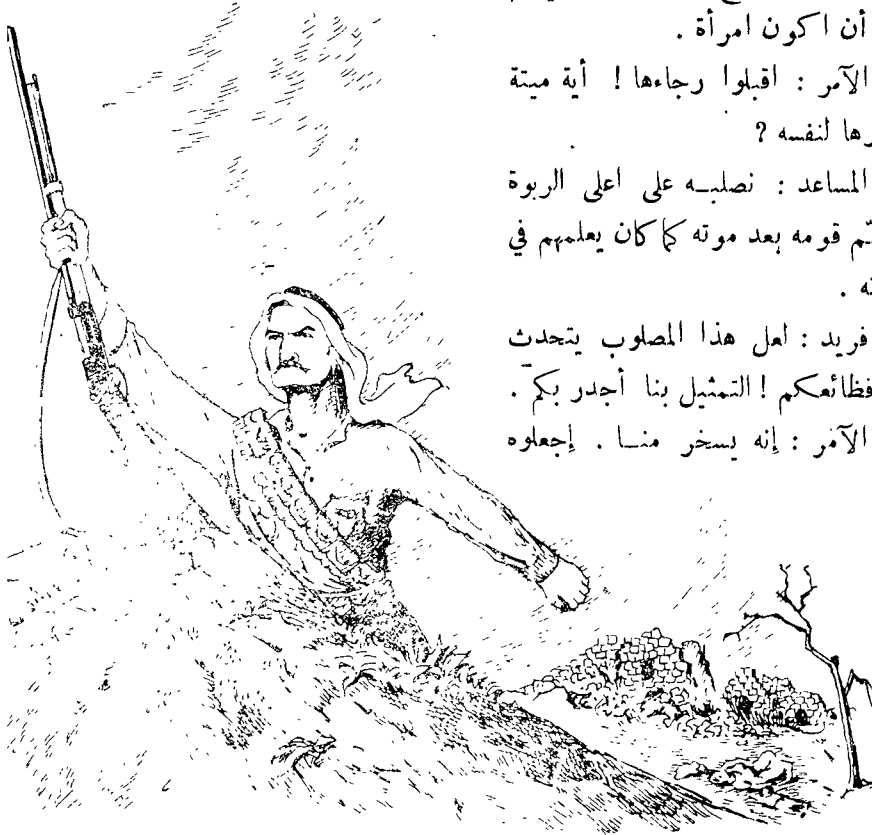 أن اكون امرأة .
الآمر : اقبلوا رجاءها ! أية ميتة
رها لنفسه ?
المساعد : نصلبـه على اعلى الربوة
ـّم قومه بعد موته كما كان يعلمهم في
ـه .
فريد : لعل هذا المصلوب يتحدث
فظائعكم ! التمثيل بنا أجدر بكم .
الآمر : إنه يسخر منـا . إجعلوه